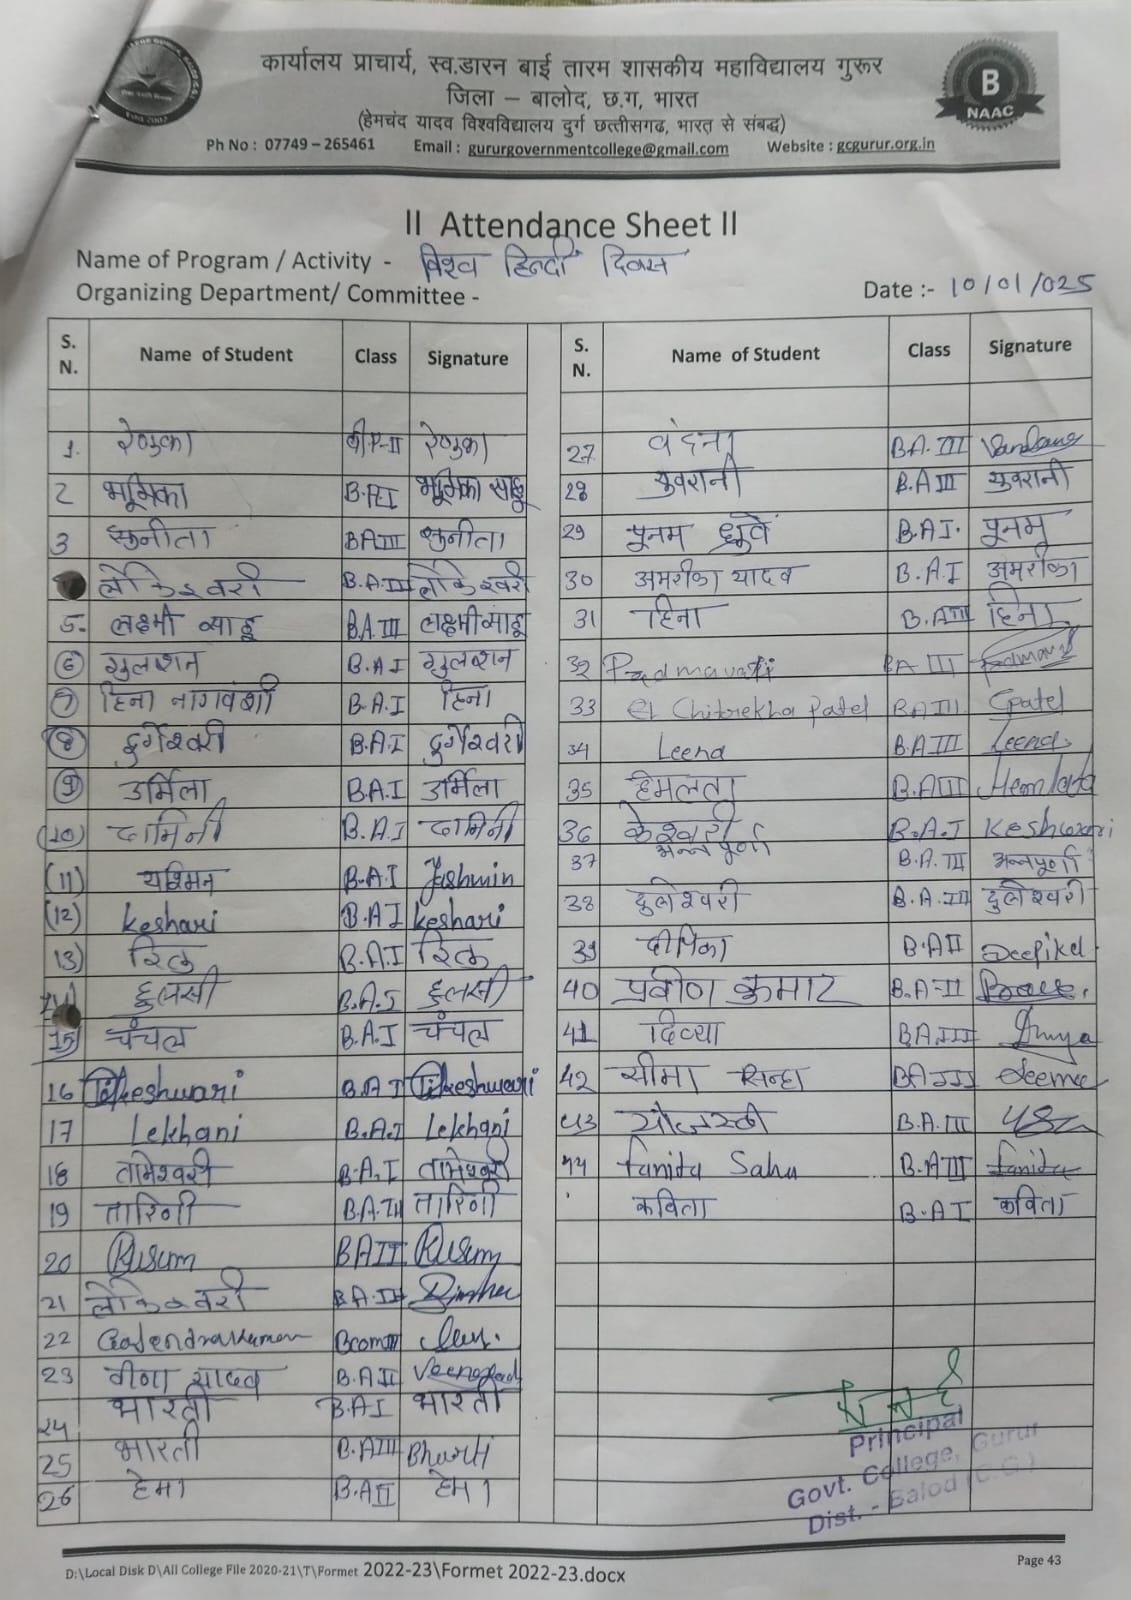 कार्यालय प्राचार्य, स्व.डारन बाई तारम शासकीय महाविद्यालय गुरूर
जिला – बालोद, छ.ग, भारत
(हेमचंद यादव विश्वविद्यालय दुर्ग छत्तीसगढ, भारत से संबद्ध)
Ph No : 07749 – 265461 Email : gururgovernmentcollege@gmail.com Website : gcgurur.org.in
B
NAAC
II Attendance Sheet II
Name of Program / Activity - विश्व हिन्दी दिवस
Organizing Department/ Committee -
Date :- 10/01/025
S. N. Name of Student Class Signature
1. रेणुका बी.ए-II रेणुका
2 भूमिका B.AI भूमिका साहू
3 सुनीता BAIII सुनीता
लोकेश्वरी B.A.III लोकेश्वरी
5. लक्ष्मी साहू B.A.III लक्ष्मी साहू
6 गुलशन B.A I गुलशन
7 हिना नागवंशी B.A.I हिना
8 दुर्गेश्वरी B.A.I दुर्गेश्वरी
9 उर्मिला B.A.I उर्मिला
(10) दामिनी B.A.I दामिनी
(11) यश्मिन B.A.I Yashmin
(12) Keshari B.A I Keshari
13) रितु B.A.I रितु
14 हुलसी B.A.I हुलसी
15) चंचल B.A.I चंचल
16 Tikeshwari B.A I Tikeshwari
17 Lekhani B.A.I Lekhani
18 तामेश्वरी B.A.I तामेश्वरी
19 तारिणी B.A.III तारिणी
20 Kusum BAII Kusum
21 लोकेश्वरी B.A.III
22 Gajendra Kumar Bcom III
23 वीणा यादव B.A.II
24 भारती B.A I भारती
25 भारती B.A III Bharti
26 हेमा B.A II हेमा
S. N. Name of Student Class Signature
27 वंदना B.A. III Vandana
28 युवरानी B.A III युवरानी
29 पूनम ध्रुवे B.A I. पूनम
30 अमरीका यादव B.A.I अमरीका
31 हिना B.A III हिना
32 Padmavati BA III
33 Chitrekha Patel BA III Cpatel
34 Leena B.A III Leena
35 हेमलता B.A III Hemlata
36 केश्वरी B.A.I Keshwari
37 अन्नपूर्णा B.A. III अन्नपूर्णा
38 दुलेश्वरी B.A.III दुलेश्वरी
39 दीपिका B.A II Deepika
40 प्रवीण कुमार B.A-II
41 दिव्या BA III
42 सीमा सिन्हा BA III Seema
43 B.A. III
44 Tanita Sahu B.A III Tanita
कविता B.A I कविता
Principal
Govt. College, Gurur
Dist. - Balod (C.G.)
D:\Local Disk D\All College File 2020-21\T\Formet 2022-23\Formet 2022-23.docx
Page 43